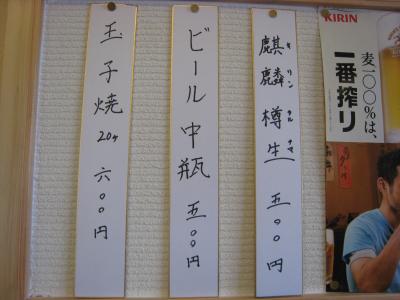 玉子焼 20ヶ 六〇〇円
ビール中瓶 五〇〇円
麒麟樽生 五〇〇円
キリン タル ナマ
KIRIN
麦一〇〇%は、
一番搾り